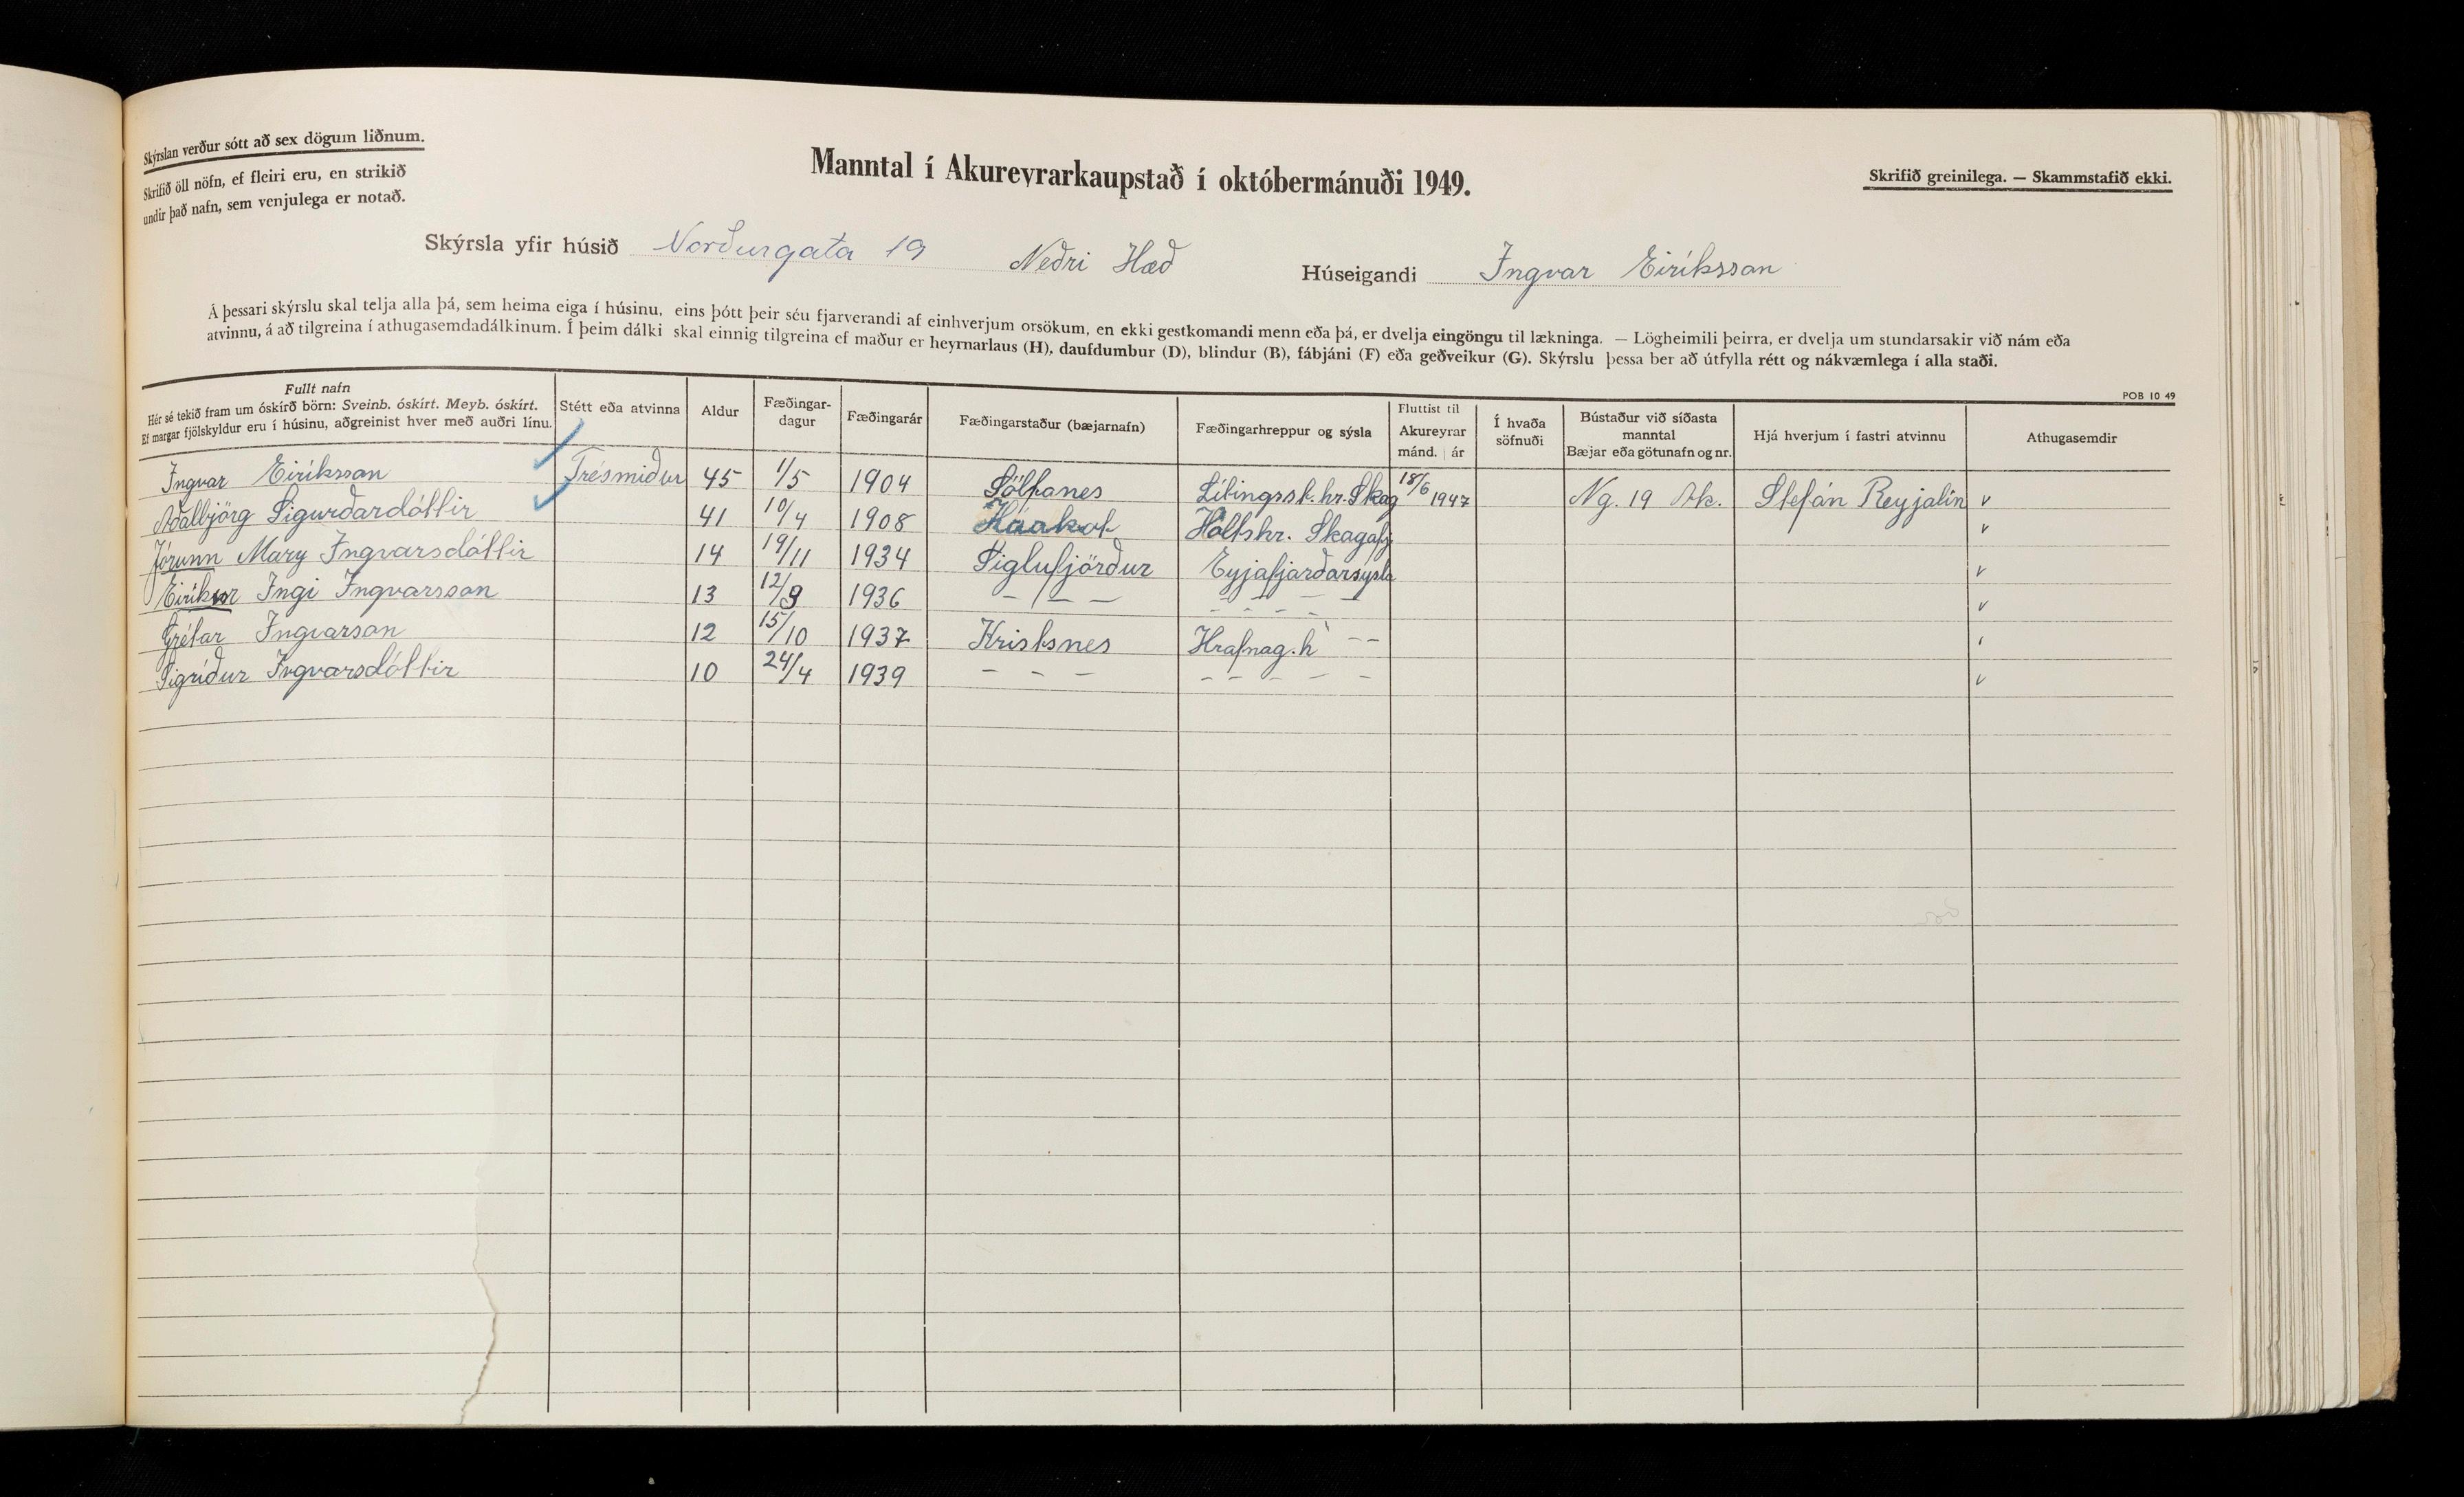 Skýrslan verður sótt að sex dögum liðnum.
Skrifið öll nöfn, ef fleiri eru, en strikið
undir það nafn, sem venjulega er notað.
Manntal í Akureyrarkaupstað í októbermánuði 1949.
Skrifið greinilega. — Skammstafið ekki.
Skýrsla yfir húsið Norðurgata 19 Neðri Hæð Húseigandi Ingvar Eiríksson
Á þessari skýrslu skal telja alla þá, sem heima eiga í húsinu, eins þótt þeir séu fjarverandi af einhverjum orsökum, en ekki gestkomandi menn eða þá, er dvelja eingöngu til lækninga. — Lögheimili þeirra, er dvelja um stundarsakir við nám eða
atvinnu, á að tilgreina í athugasemdadálkinum. Í þeim dálki skal einnig tilgreina ef maður er heyrnarlaus (H), daufdumbur (D), blindur (B), fábjáni (F) eða geðveikur (G). Skýrslu þessa ber að útfylla rétt og nákvæmlega í alla staði.
POB 10 49
Fullt nafn
Hér sé tekið fram um óskírð börn: Sveinb. óskírt. Meyb. óskírt.
Ef margar fjölskyldur eru í húsinu, aðgreinist hver með auðri línu.
Stétt eða atvinna
Aldur
Fæðingar-
dagur
Fæðingarár
Fæðingarstaður (bæjarnafn)
Fæðingarhreppur og sýsla
Fluttist til
Akureyrar
mánd. | ár
Í hvaða
söfnuði
Bústaður við síðasta
manntal
Bæjar eða götunafn og nr.
Hjá hverjum í fastri atvinnu
Athugasemdir
Ingvar Eiríksson Trésmiður 45 1/5 1904 18/6 1947 Ng. 19 Ak. Stefán Reyjalín v
Aðalbjörg Sigurðardóttir 41 10/4 1908 Holtshr. Skagafj v
Jórunn Mary Ingvarsdóttir 14 19/11 1934 Siglufjörður Eyjafjarðarsýsla v
Eiríkur Ingi Ingvarsson 13 12/9 1936 — — — - - - - - v
Grétar Ingvarson 12 15/10 1937 Kristsnes Hrafnag.h - -
Sigríður Ingvarsdóttir 10 24/4 1939 - - - - - - - - v